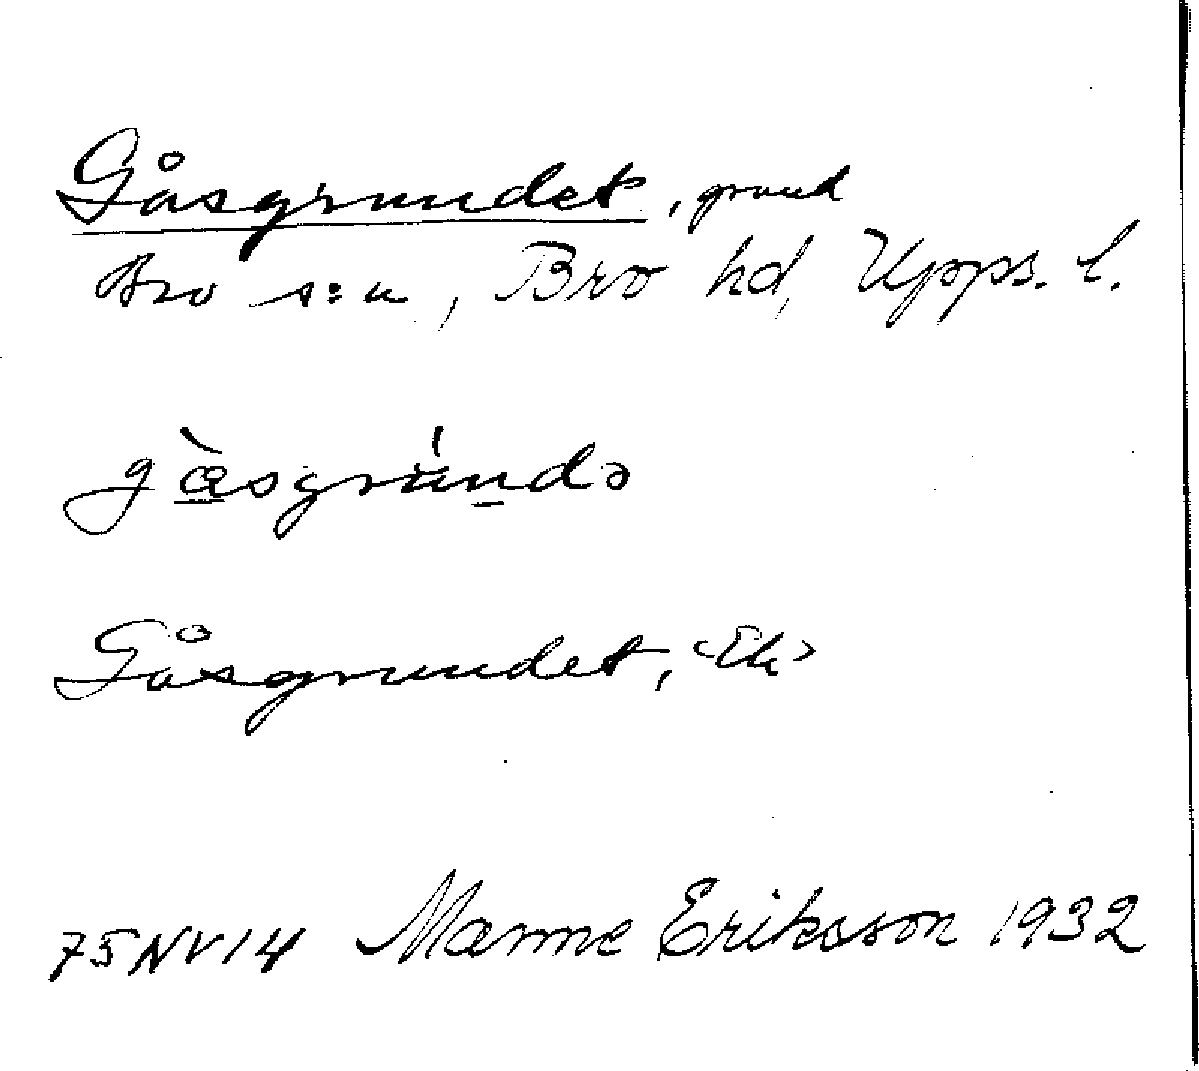 Gåsgrundet, grund
Bro s:n, Bro hd, Upps. l.
gàsgru̇ndə
Gåsgrundet, <Ek>
75NV14 Manne Eriksson 1932